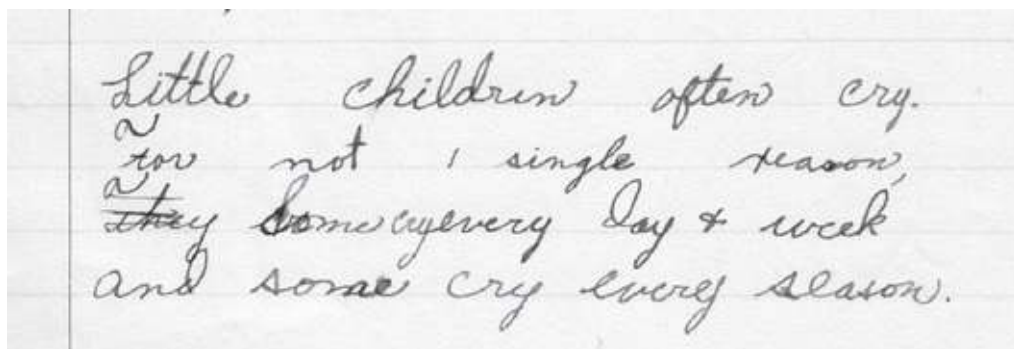 Little children often cry.
For not 1 single reason,
they Some cry every day & week
and some cry every season.